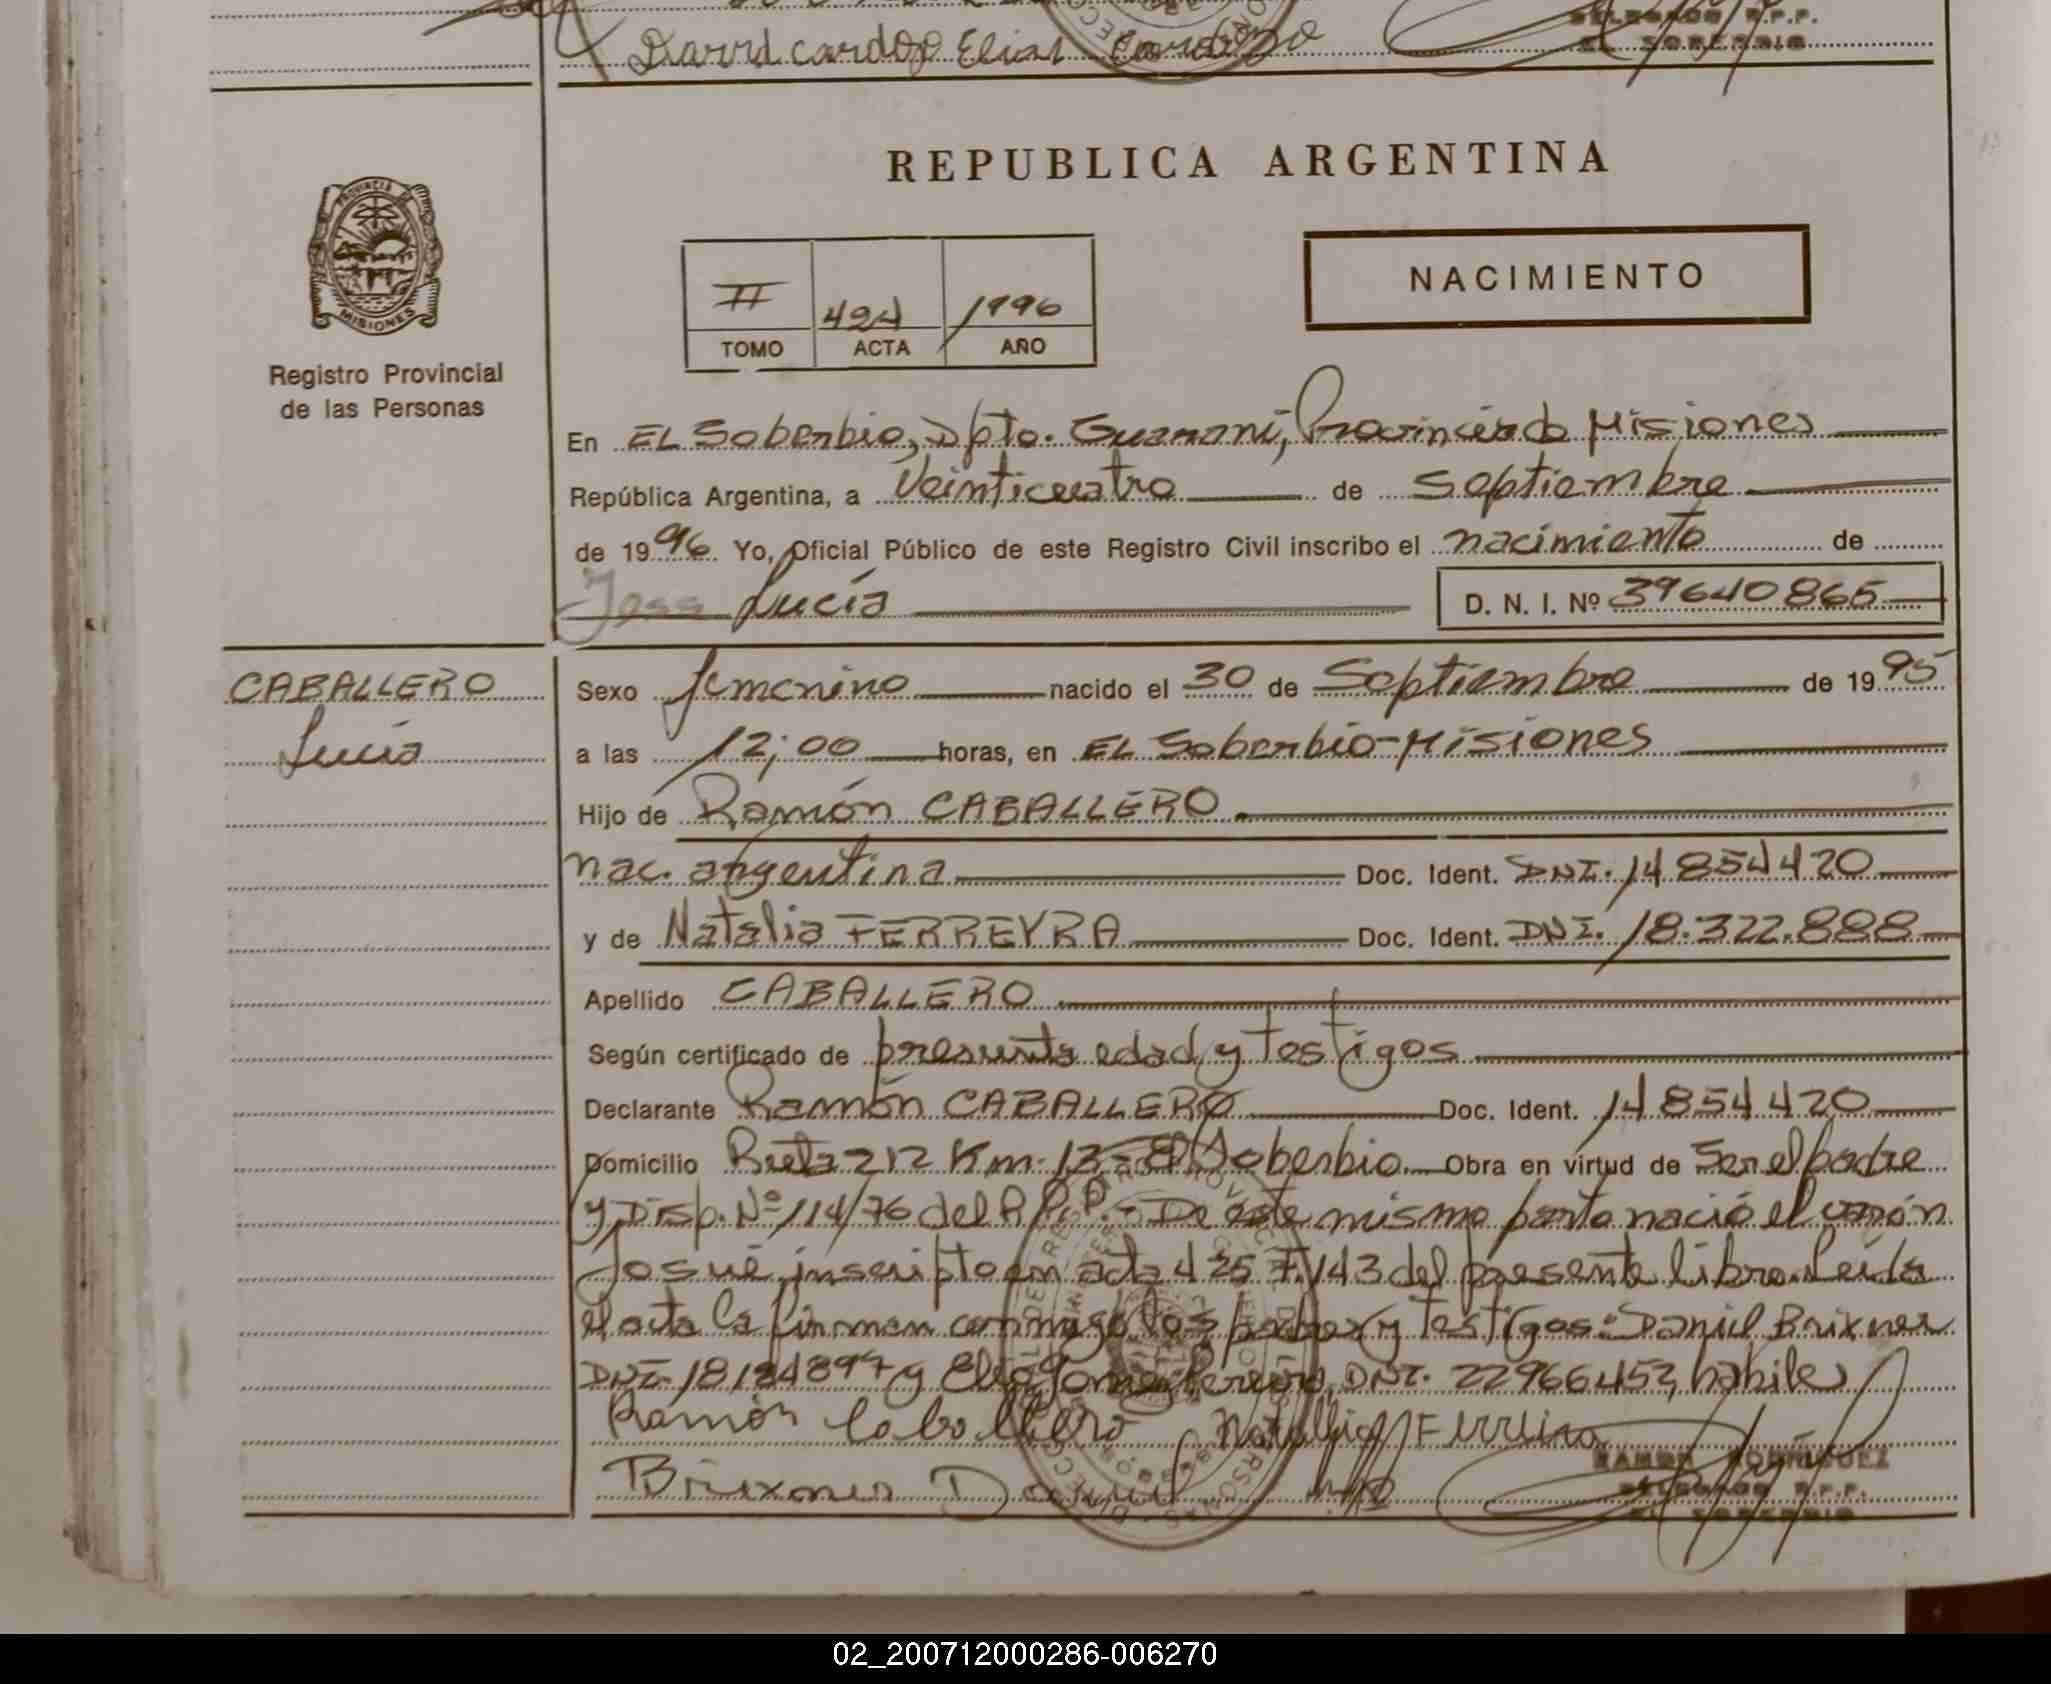 David cardozo Elias Cardozo
DELEGADO R.P.P.
EL SOBERBIO
REPUBLICA ARGENTINA
PROVINCIA DE
MISIONES
Registro Provincial
de las Personas
NACIMIENTO
II 424 1996
TOMO ACTA AÑO
En EL Soberbio, Dpto. Guarani, Provincia de Misiones
República Argentina, a Veinticuatro de Septiembre
de 1996 Yo, Oficial Público de este Registro Civil inscribo el nacimiento de
Lucía D. N. I. Nº 39640865
CABALLERO
Lucía
Sexo femenino nacido el 30 de Septiembre de 1995
a las 12;00 horas, en EL Soberbio-Misiones
Hijo de Ramón CABALLERO
nac. argentina Doc. Ident. DNI. 14 854 420
y de Natalia FERREYRA Doc. Ident. DNI. 18.322.888
Apellido CABALLERO
Según certificado de presunta edad y testigos
Declarante Ramón CABALLERO Doc. Ident. 14 854 420
Domicilio Ruta 212 Km. 13 - El Soberbio Obra en virtud de Ser el padre
y Disp. Nº 114/76 del R.P.P.- De este mismo parto nació el varón
Josué, inscripto en acta 425 F. 143 del presente libro. Leída
el acta la firman conmigo los padres y testigos: Daniel Brixner
DNI 18184897 y Pereira, DNI. 22966452, habiles
Ramón Caballero Natallia Ferreira
Brixner Daniel
RAMON RODRIGUEZ
DELEGADO R.P.P.
EL SOBERBIO
02_200712000286-006270